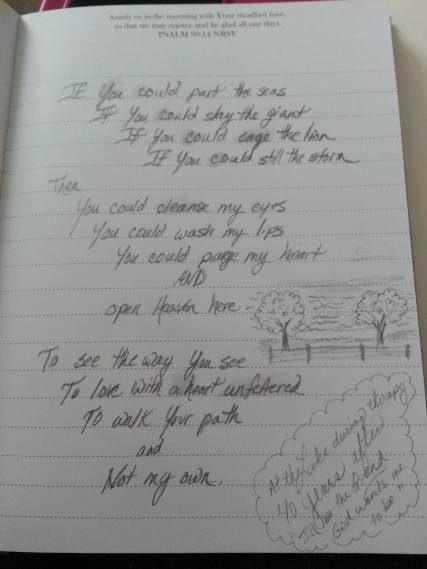 Satisfy us in the morning with Your steadfast love,
so that we may rejoice and be glad all our days.
PSALM 90:14 NRSV
If You could part the seas
If You could slay the giant
If You could cage the lion
If You could still the storm
Then
You could cleanse my eyes
You could wash my lips
You could purge my heart
AND
open Heaven here
To see the way You see
To love with a heart unfettered
To walk Your path
and
Not my own.
At the Lake during therapy
40 years after
I'll be the friend
God wants me
to be"